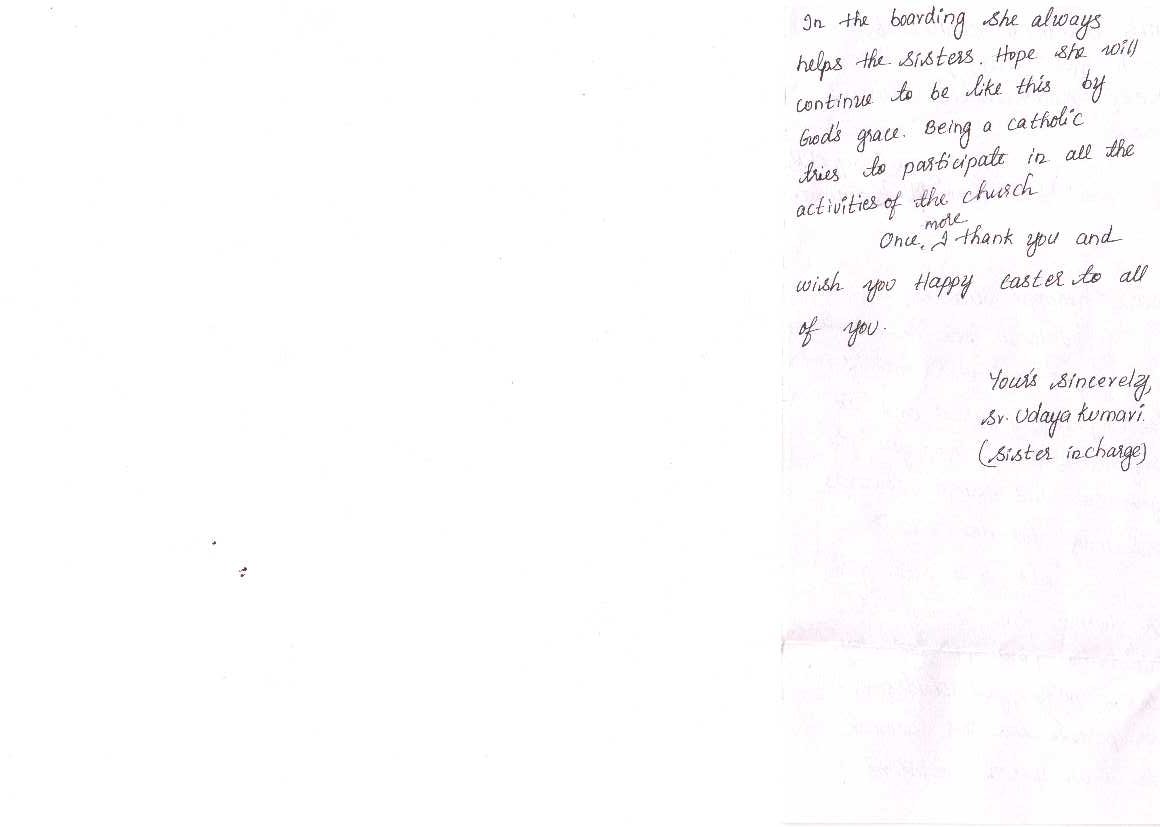 In the boarding she always
helps the sisters. Hope she will
continue to be like this by
God's grace. Being a catholic
tries to participate in all the
activities of the church
more
Once, I thank you and
wish you Happy easter to all
of you.
Your's sincerely,
Sr. Udaya Kumari.
(Sister incharge)